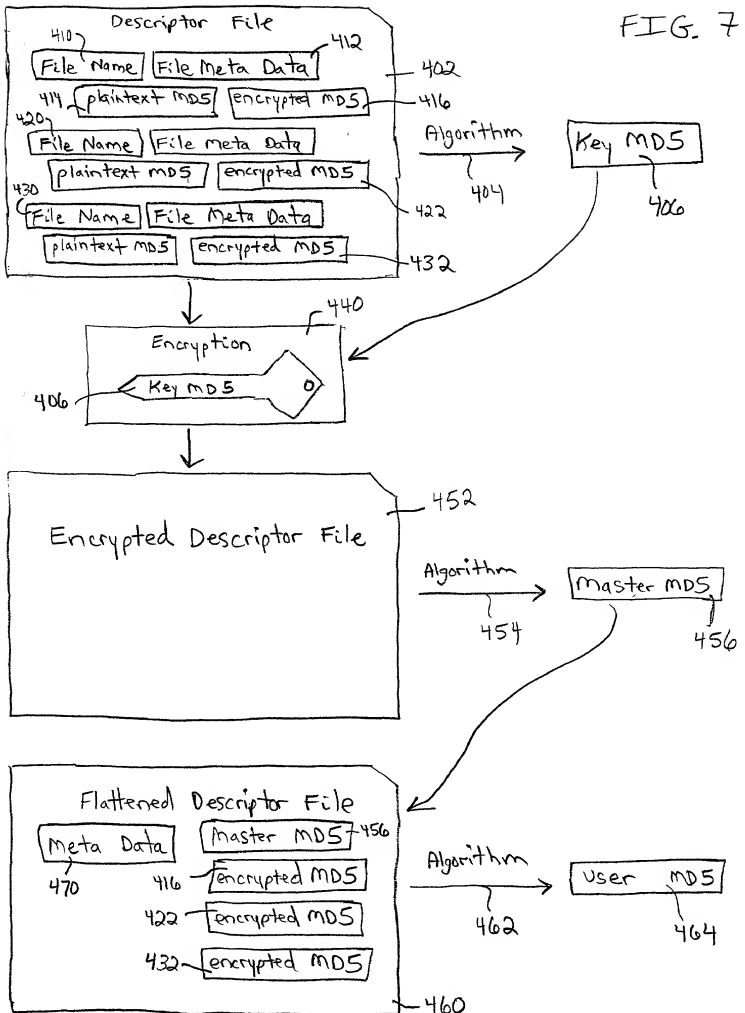 FIG. 7
Descriptor File
410
412
File Name File Meta Data
402
414 plaintext MD5 encrypted MD5 416
420
File Name File Meta Data
plaintext MD5 encrypted MD5
422
430
File Name File Meta Data
plaintext MD5 encrypted MD5
432
Algorithm
404
Key MD5
406
440
Encryption
Key MD5
406
452
Encrypted Descriptor File
Algorithm
454
Master MD5
456
Flattened Descriptor File
Meta Data
470
Master MD5 456
416 encrypted MD5
422 encrypted MD5
432 encrypted MD5
460
Algorithm
462
User MD5
464